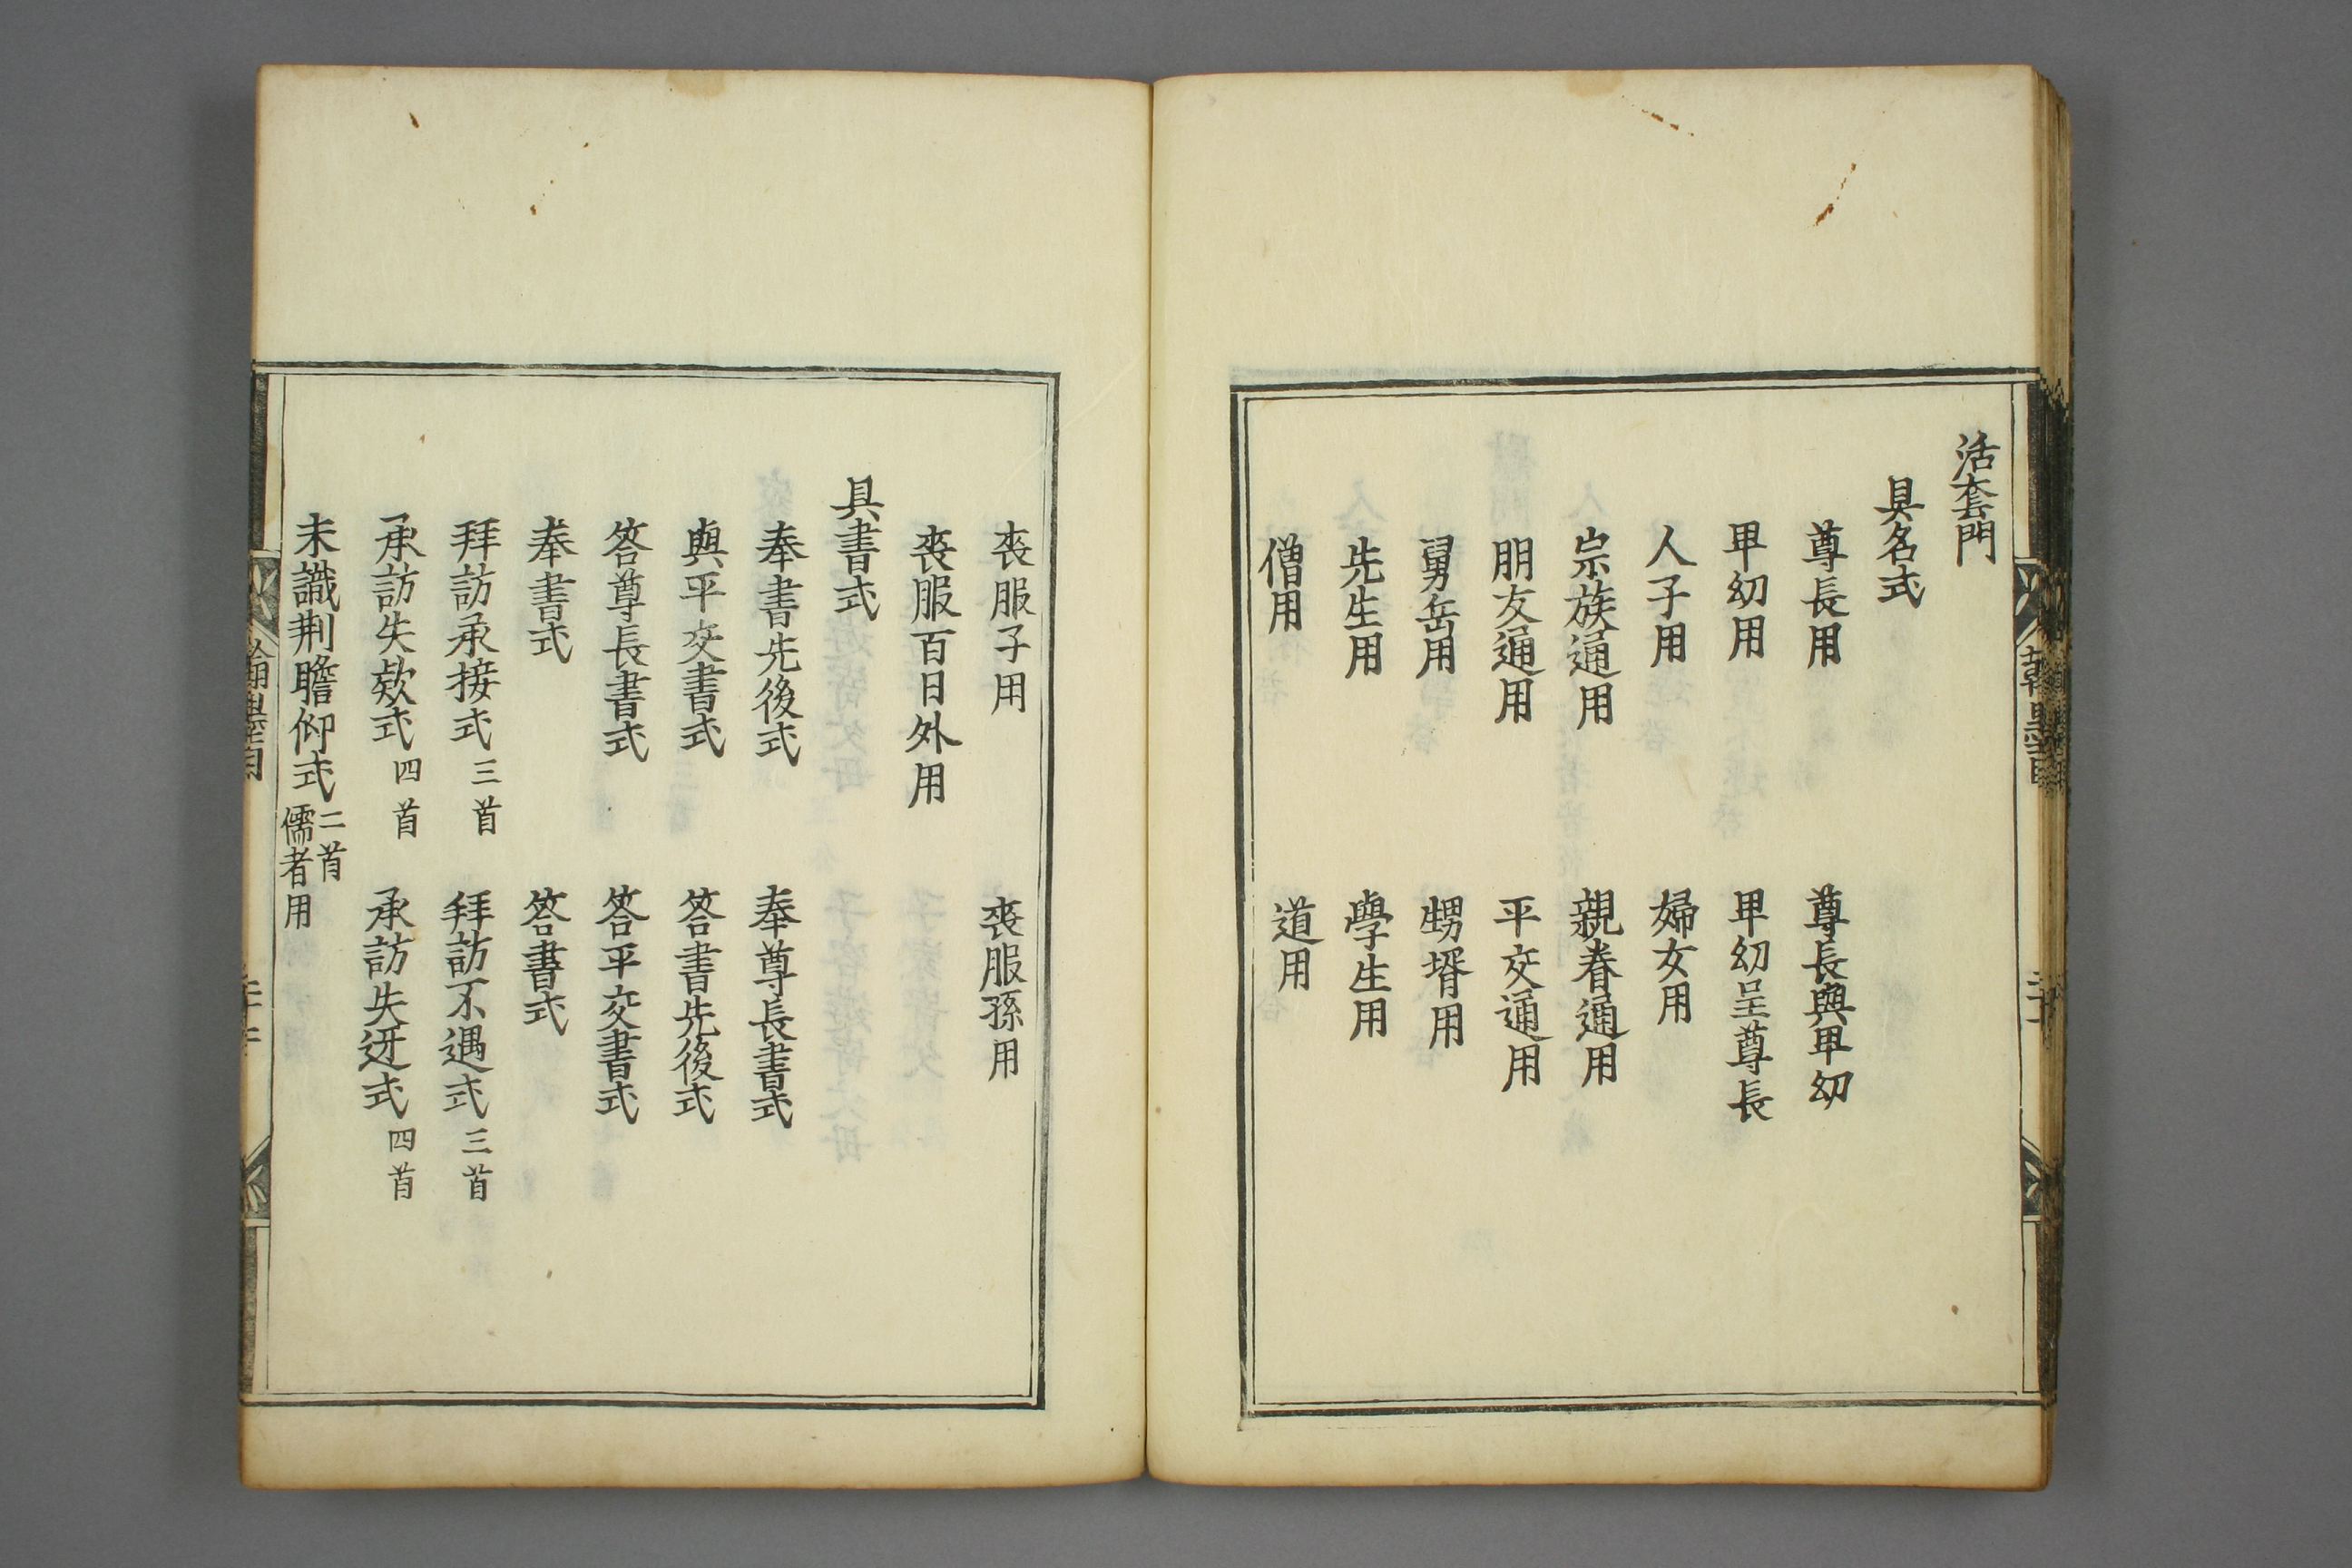 活套門
具名式
尊長用　尊長與卑幼
卑幼用　卑幼呈尊長
人子用　婦女用
宗族通用　親眷通用
朋友通用　平交通用
舅岳用　甥壻用
先生用　學生用
僧用　道用
喪服子用　喪服孫用
喪服百日外用
具書式
奉書先後式　奉尊長書式
與平交書式　答書先後式
答尊長書式　答平交書式
奉書式　答書式
拜訪承接式三首　拜訪不遇式三首
承訪失欵式四首　承訪失迓式四首
未識荆瞻仰式二首儒者用